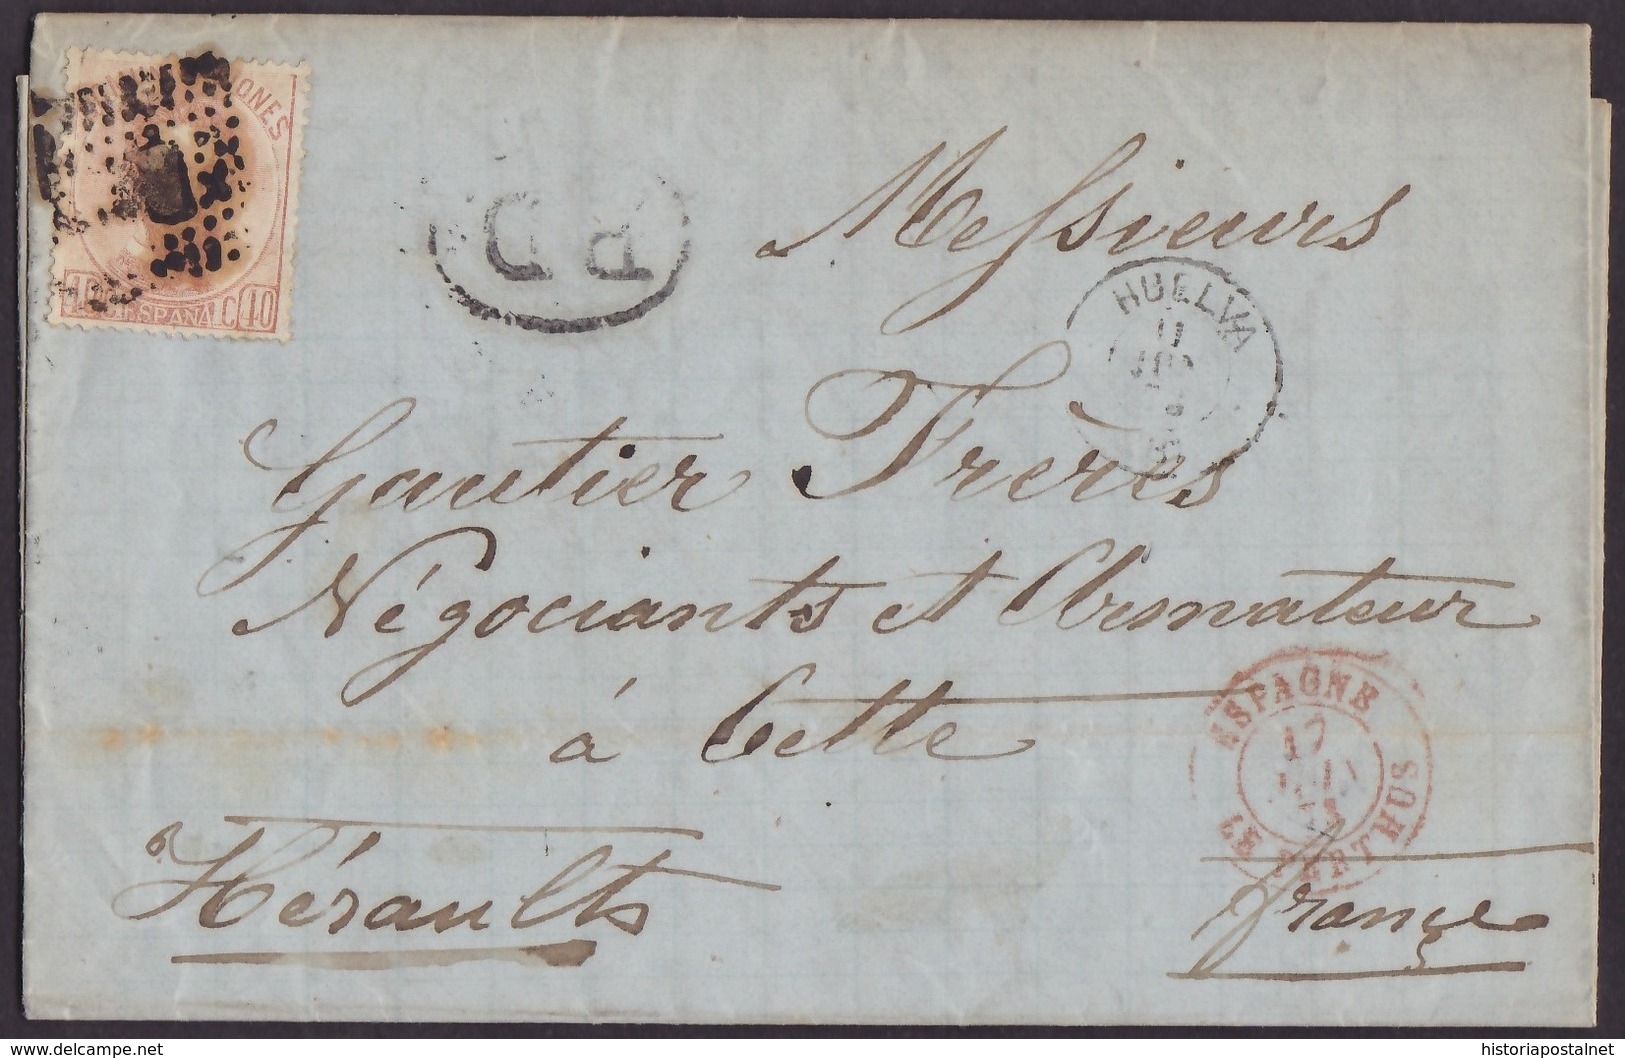 ONES
40 ESPAÑA C 40
PD
Messieurs
HUELVA
11
Gautier Frères
Négociants et Armateur
à Cette
ESPAGNE
17
LE PERTHUS
Hérault
France
delcampe.net
historiapostalnet